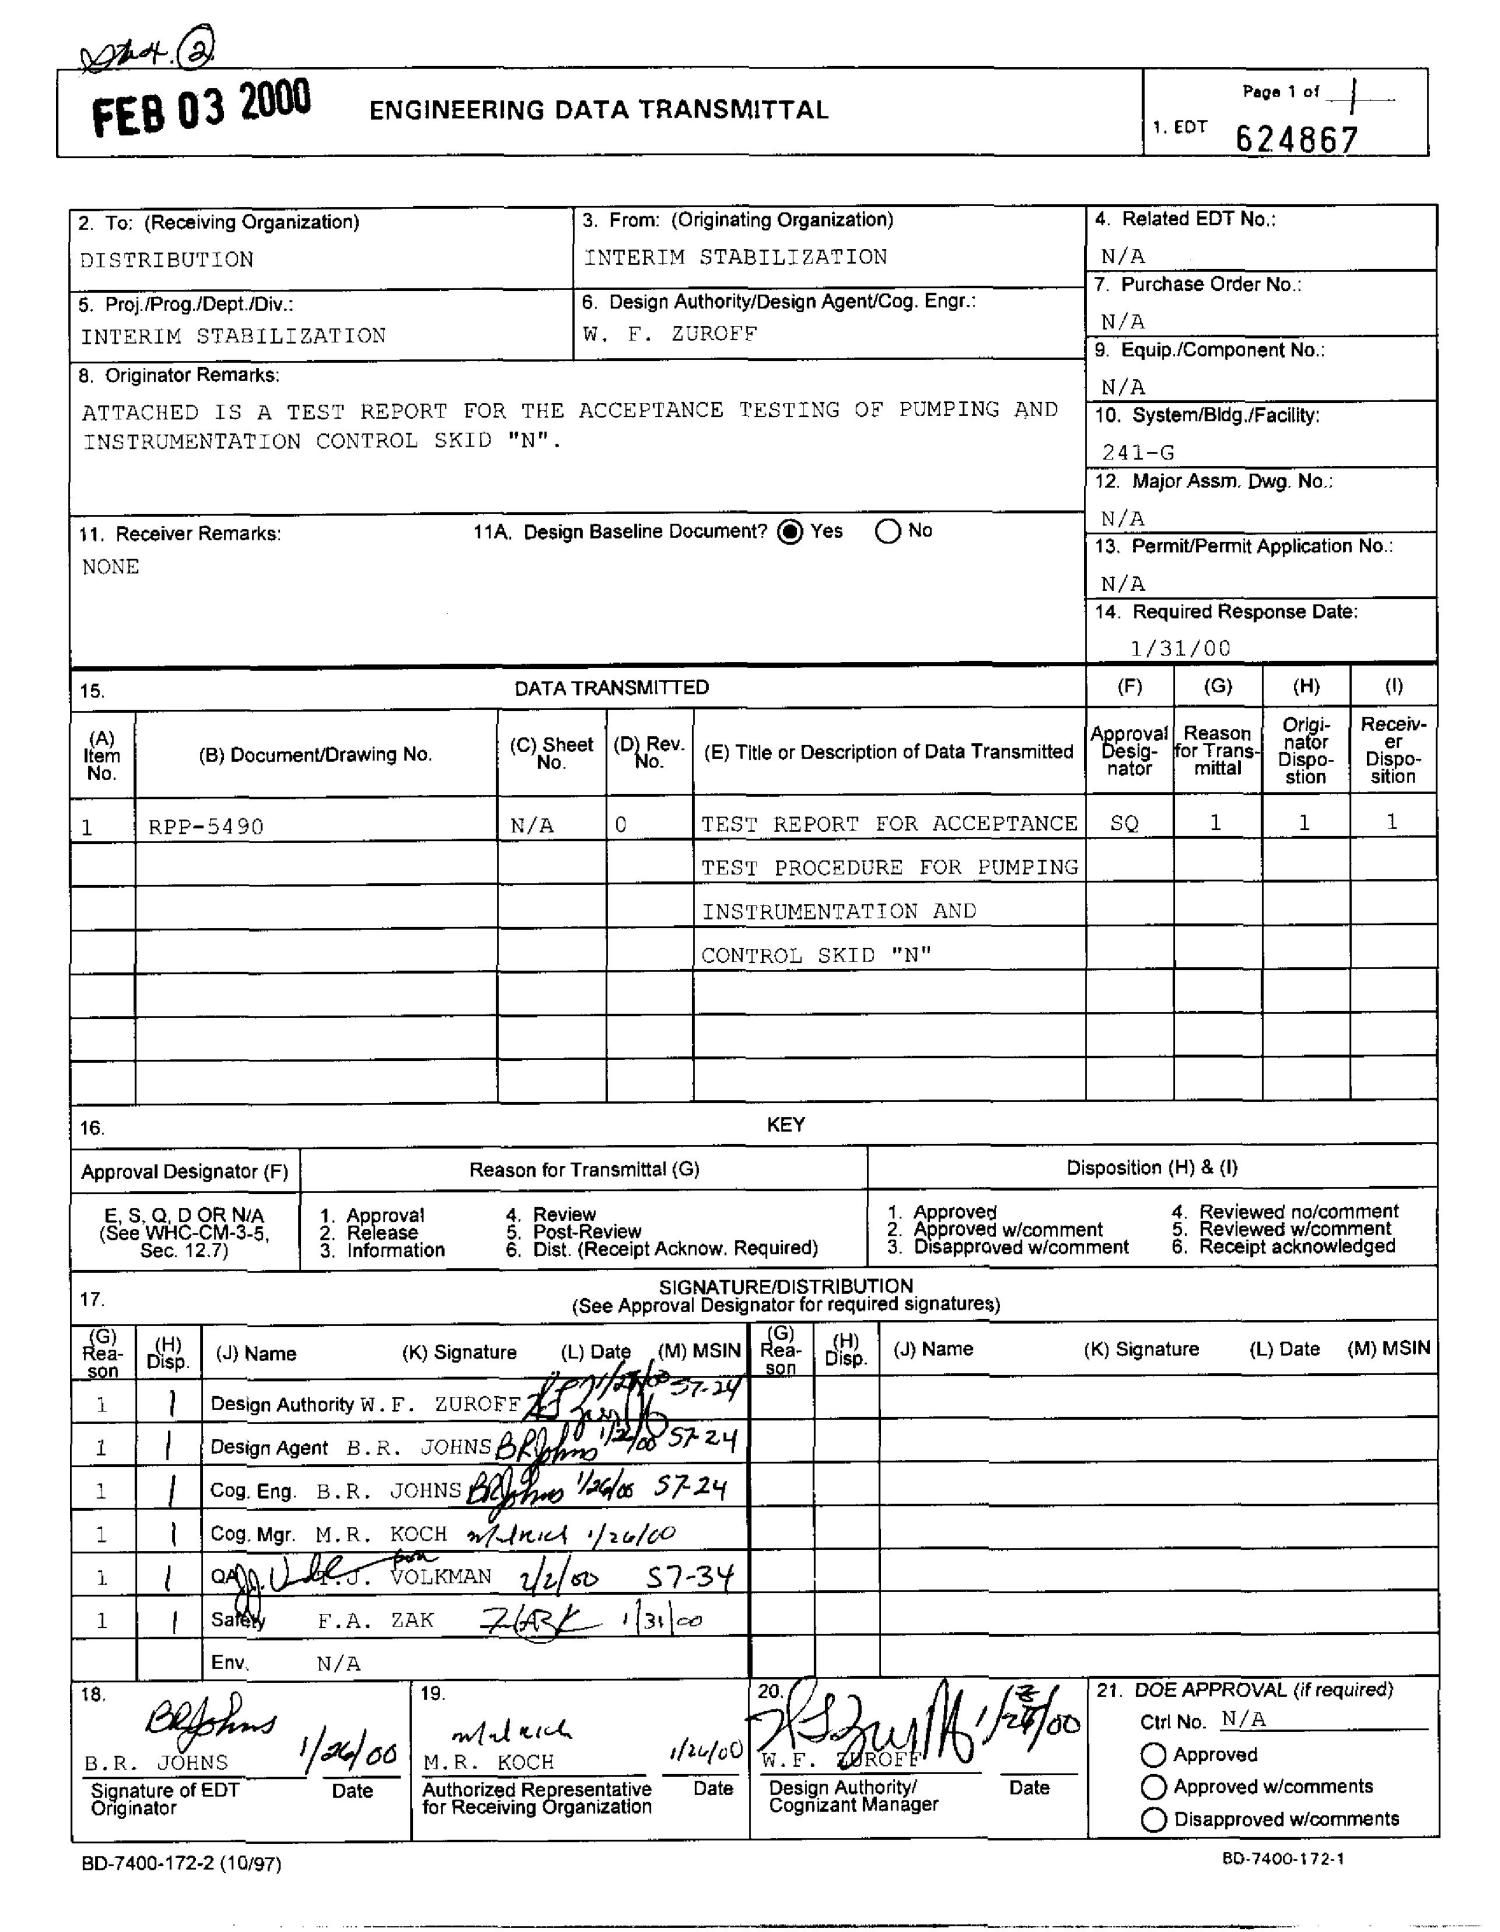 Sta. 4. 2
FEB 03 2000
ENGINEERING DATA TRANSMITTAL
Page 1 of 1
1. EDT 624867
2. To: (Receiving Organization)
DISTRIBUTION
3. From: (Originating Organization)
INTERIM STABILIZATION
4. Related EDT No.:
N/A
5. Proj./Prog./Dept./Div.:
INTERIM STABILIZATION
6. Design Authority/Design Agent/Cog. Engr.:
W. F. ZUROFF
7. Purchase Order No.:
N/A
8. Originator Remarks:
ATTACHED IS A TEST REPORT FOR THE ACCEPTANCE TESTING OF PUMPING AND
INSTRUMENTATION CONTROL SKID "N".
9. Equip./Component No.:
N/A
10. System/Bldg./Facility:
241-G
12. Major Assm. Dwg. No.:
N/A
11. Receiver Remarks:
11A. Design Baseline Document? Yes No
NONE
13. Permit/Permit Application No.:
N/A
14. Required Response Date:
1/31/00
15. DATA TRANSMITTED (F) (G) (H) (I)
(A) Item No.
(B) Document/Drawing No.
(C) Sheet No.
(D) Rev. No.
(E) Title or Description of Data Transmitted
Approval Desig- nator
Reason for Trans- mittal
Origi- nator Dispo- stion
Receiv- er Dispo- sition
1 RPP-5490 N/A 0 TEST REPORT FOR ACCEPTANCE SQ 1 1 1
TEST PROCEDURE FOR PUMPING
INSTRUMENTATION AND
CONTROL SKID "N"
16. KEY
Approval Designator (F) Reason for Transmittal (G) Disposition (H) & (I)
E, S, Q, D OR N/A
(See WHC-CM-3-5,
Sec. 12.7)
1. Approval 4. Review
2. Release 5. Post-Review
3. Information 6. Dist. (Receipt Acknow. Required)
1. Approved 4. Reviewed no/comment
2. Approved w/comment 5. Reviewed w/comment
3. Disapproved w/comment 6. Receipt acknowledged
17. SIGNATURE/DISTRIBUTION
(See Approval Designator for required signatures)
(G) Rea- son (H) Disp. (J) Name (K) Signature (L) Date (M) MSIN
(G) Rea- son (H) Disp. (J) Name (K) Signature (L) Date (M) MSIN
1 1 Design Authority W.F. ZUROFF S7-24
1 1 Design Agent B.R. JOHNS BRJohns S7-24
1 1 Cog. Eng. B.R. JOHNS BRJohns 1/26/00 S7-24
1 1 Cog. Mgr. M.R. KOCH 1/26/00
1 1 QA VOLKMAN 2/2/00 S7-34
1 1 Safety F.A. ZAK 1/31/00
Env. N/A
18.
BRJohns 1/26/00
B.R. JOHNS
Signature of EDT Originator Date
19.
1/26/00
M.R. KOCH
Authorized Representative for Receiving Organization Date
20.
W.F. ZUROFF
Design Authority/ Cognizant Manager Date
21. DOE APPROVAL (if required)
Ctrl No. N/A
Approved
Approved w/comments
Disapproved w/comments
BD-7400-172-2 (10/97)
BD-7400-172-1